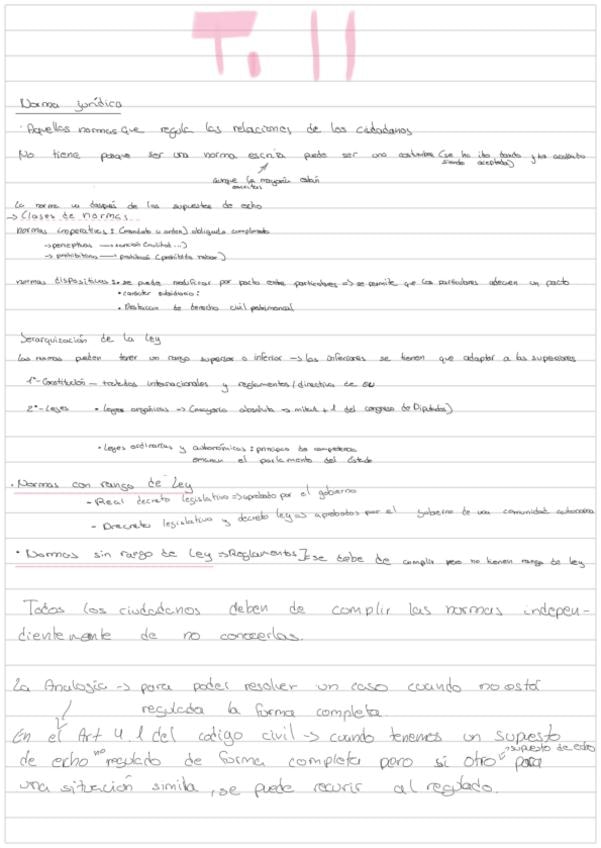 T. 11
Norma jurídica
· Aquellas normas que regula las relaciones de los ciudadanos
No tiene porque ser una norma escria puede ser una costumbre (se ha ido dando y ha acabado siendo aceptada)
aunque la mayoría están escritas
La norma va después de los supuestos de echo
→ Clases de normas
normas imperativas: (mandato u orden) obligado cumplimiento
→ perceptivas → sanción (multa...)
→ prohibitivas → prohibir (prohibido robar)
normas dispositivas: se puede modificar por pacto entre particulares => se permite que los particulares adecuen un pacto
• carácter subsidiario:
• Destacan de derecho civil patrimonial
Jerarquización de la ley
Las normas pueden tener un rango superior o inferior → las inferiores se tienen que adaptar a las superiores
1º- Constitución — tratados internacionales y reglamentos/directiva de EU
2º- Leyes • leyes orgánicas → (mayoría absoluta → mitad + 1 del congreso de Diputados)
• Leyes ordinarias y autonómicas: principio de competencia
emanan el parlamento del Estado
· Normas con rango de Ley
- Real decreto legislativo => aprobado por el gobierno
- Decreto legislativo y decreto ley => aprobados por el gobierno de una comunidad autonoma
• Normas sin rango de ley => Reglamentos] => se debe de complir pero no tienen rango de ley
Todos los ciudadanos deben de complir las normas indepen-
dientemente de no conocerlas.
La Analogía → para poder resolver un caso cuando no está
regulada la forma completa.
En el Art 4.1 del codigo civil → cuando tenemos un supuesto
de echo no regulado de forma completa pero si otro supuesto de echo para
una situación simila, se puede recurir al regulado.